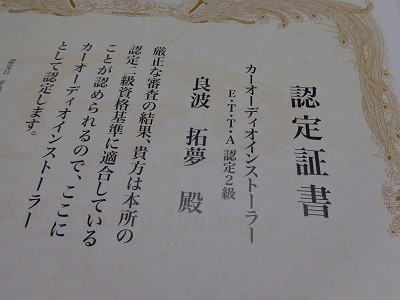 認定証書
カーオーディオインストーラー
E・T・T・A 認定2級
良波 拓夢 殿
厳正な審査の結果、貴方は本所の
認定二級資格基準に適合している
ことが認められるので、ここに
カーオーディオインストーラー
として認定します。